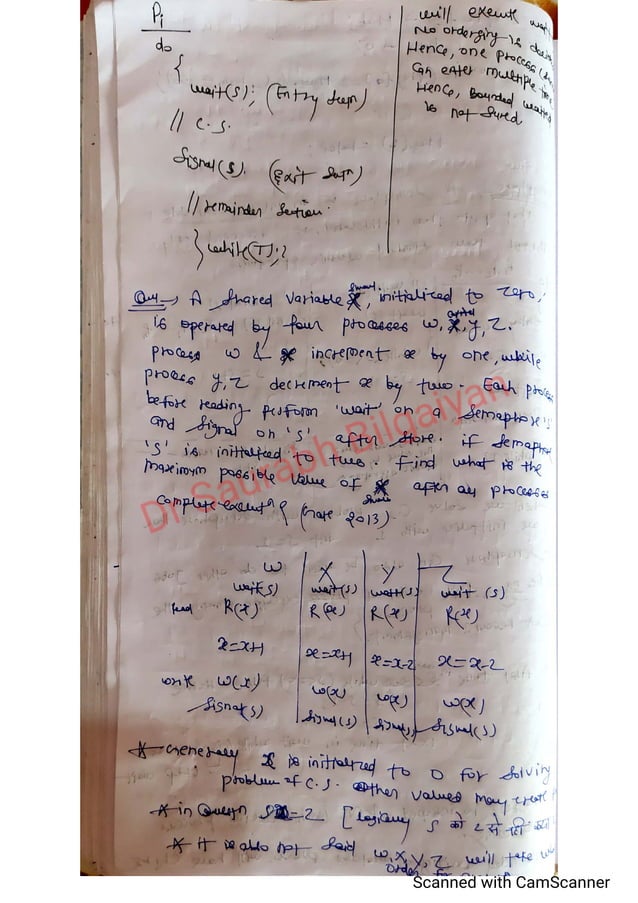 Pi
do
{
wait(S); (Entry Secn)
// C.S.
Signal(S). (Exit Secn)
// remainder Section.
} while(T);
will execute
No ordering is
Hence, one process
can enter multiple
Hence, bounded
is not
Qn → A shared variable x, initialized to zero,
is operated by four processes W, X, Y, Z.
process W & X increment x by one, while
process Y, Z decrement x by two. Each process
before reading perform 'wait' on a Semaphore 'S'
and Signal on 'S' after store. if Semaphore
'S' is initialized to two. Find what is the
maximum possible value of x after all processes
complete (Gate 2013).
Dr Saurabh Bilgaiyan
W X Y Z
wait(S) wait(S) wait(S) wait (S)
read R(x) R(x) R(x) R(x)
x=x+1 x=x+1 x=x-2 x=x-2
write W(x) W(x) W(x) W(x)
Signal(S) Signal(S) Signal(S) Signal(S)
* Generally is initialized to 0 for solving
problem of C.S. Other values may create
* in Question S=2 [logically S को 2 से
* it is also not said W, X, Y, Z will
order
Scanned with CamScanner